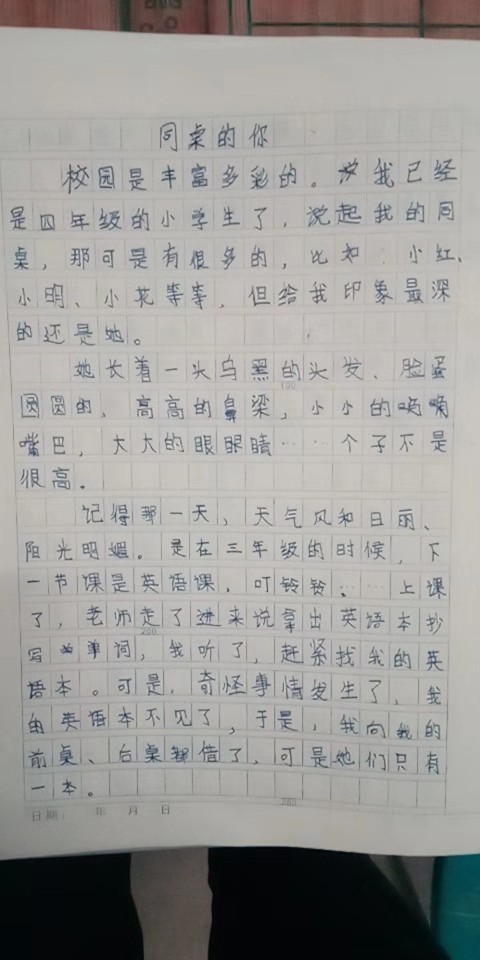 同桌的你
校园是丰富多彩的。我已经
是四年级的小学生了，说起我的同
桌，那可是有很多的，比如：小红、
小明、小花等等，但给我印象最深
的还是她。
她长着一头乌黑的头发、脸蛋
圆圆的，高高的鼻梁，小小的嘴
嘴巴，大大的眼眼睛……个子不是
很高。
记得那一天，天气风和日丽、
阳光明媚。是在三年级的时候，下
一节课是英语课，叮铃铃……上课
了，老师走了进来说拿出英语本抄
写单词，我听了，赶紧找我的英
语本。可是，奇怪事情发生了，我
的英语本不见了，于是，我向我的
前桌、后桌都借了，可是她们只有
一本。
日期： 年 月 日
100
200